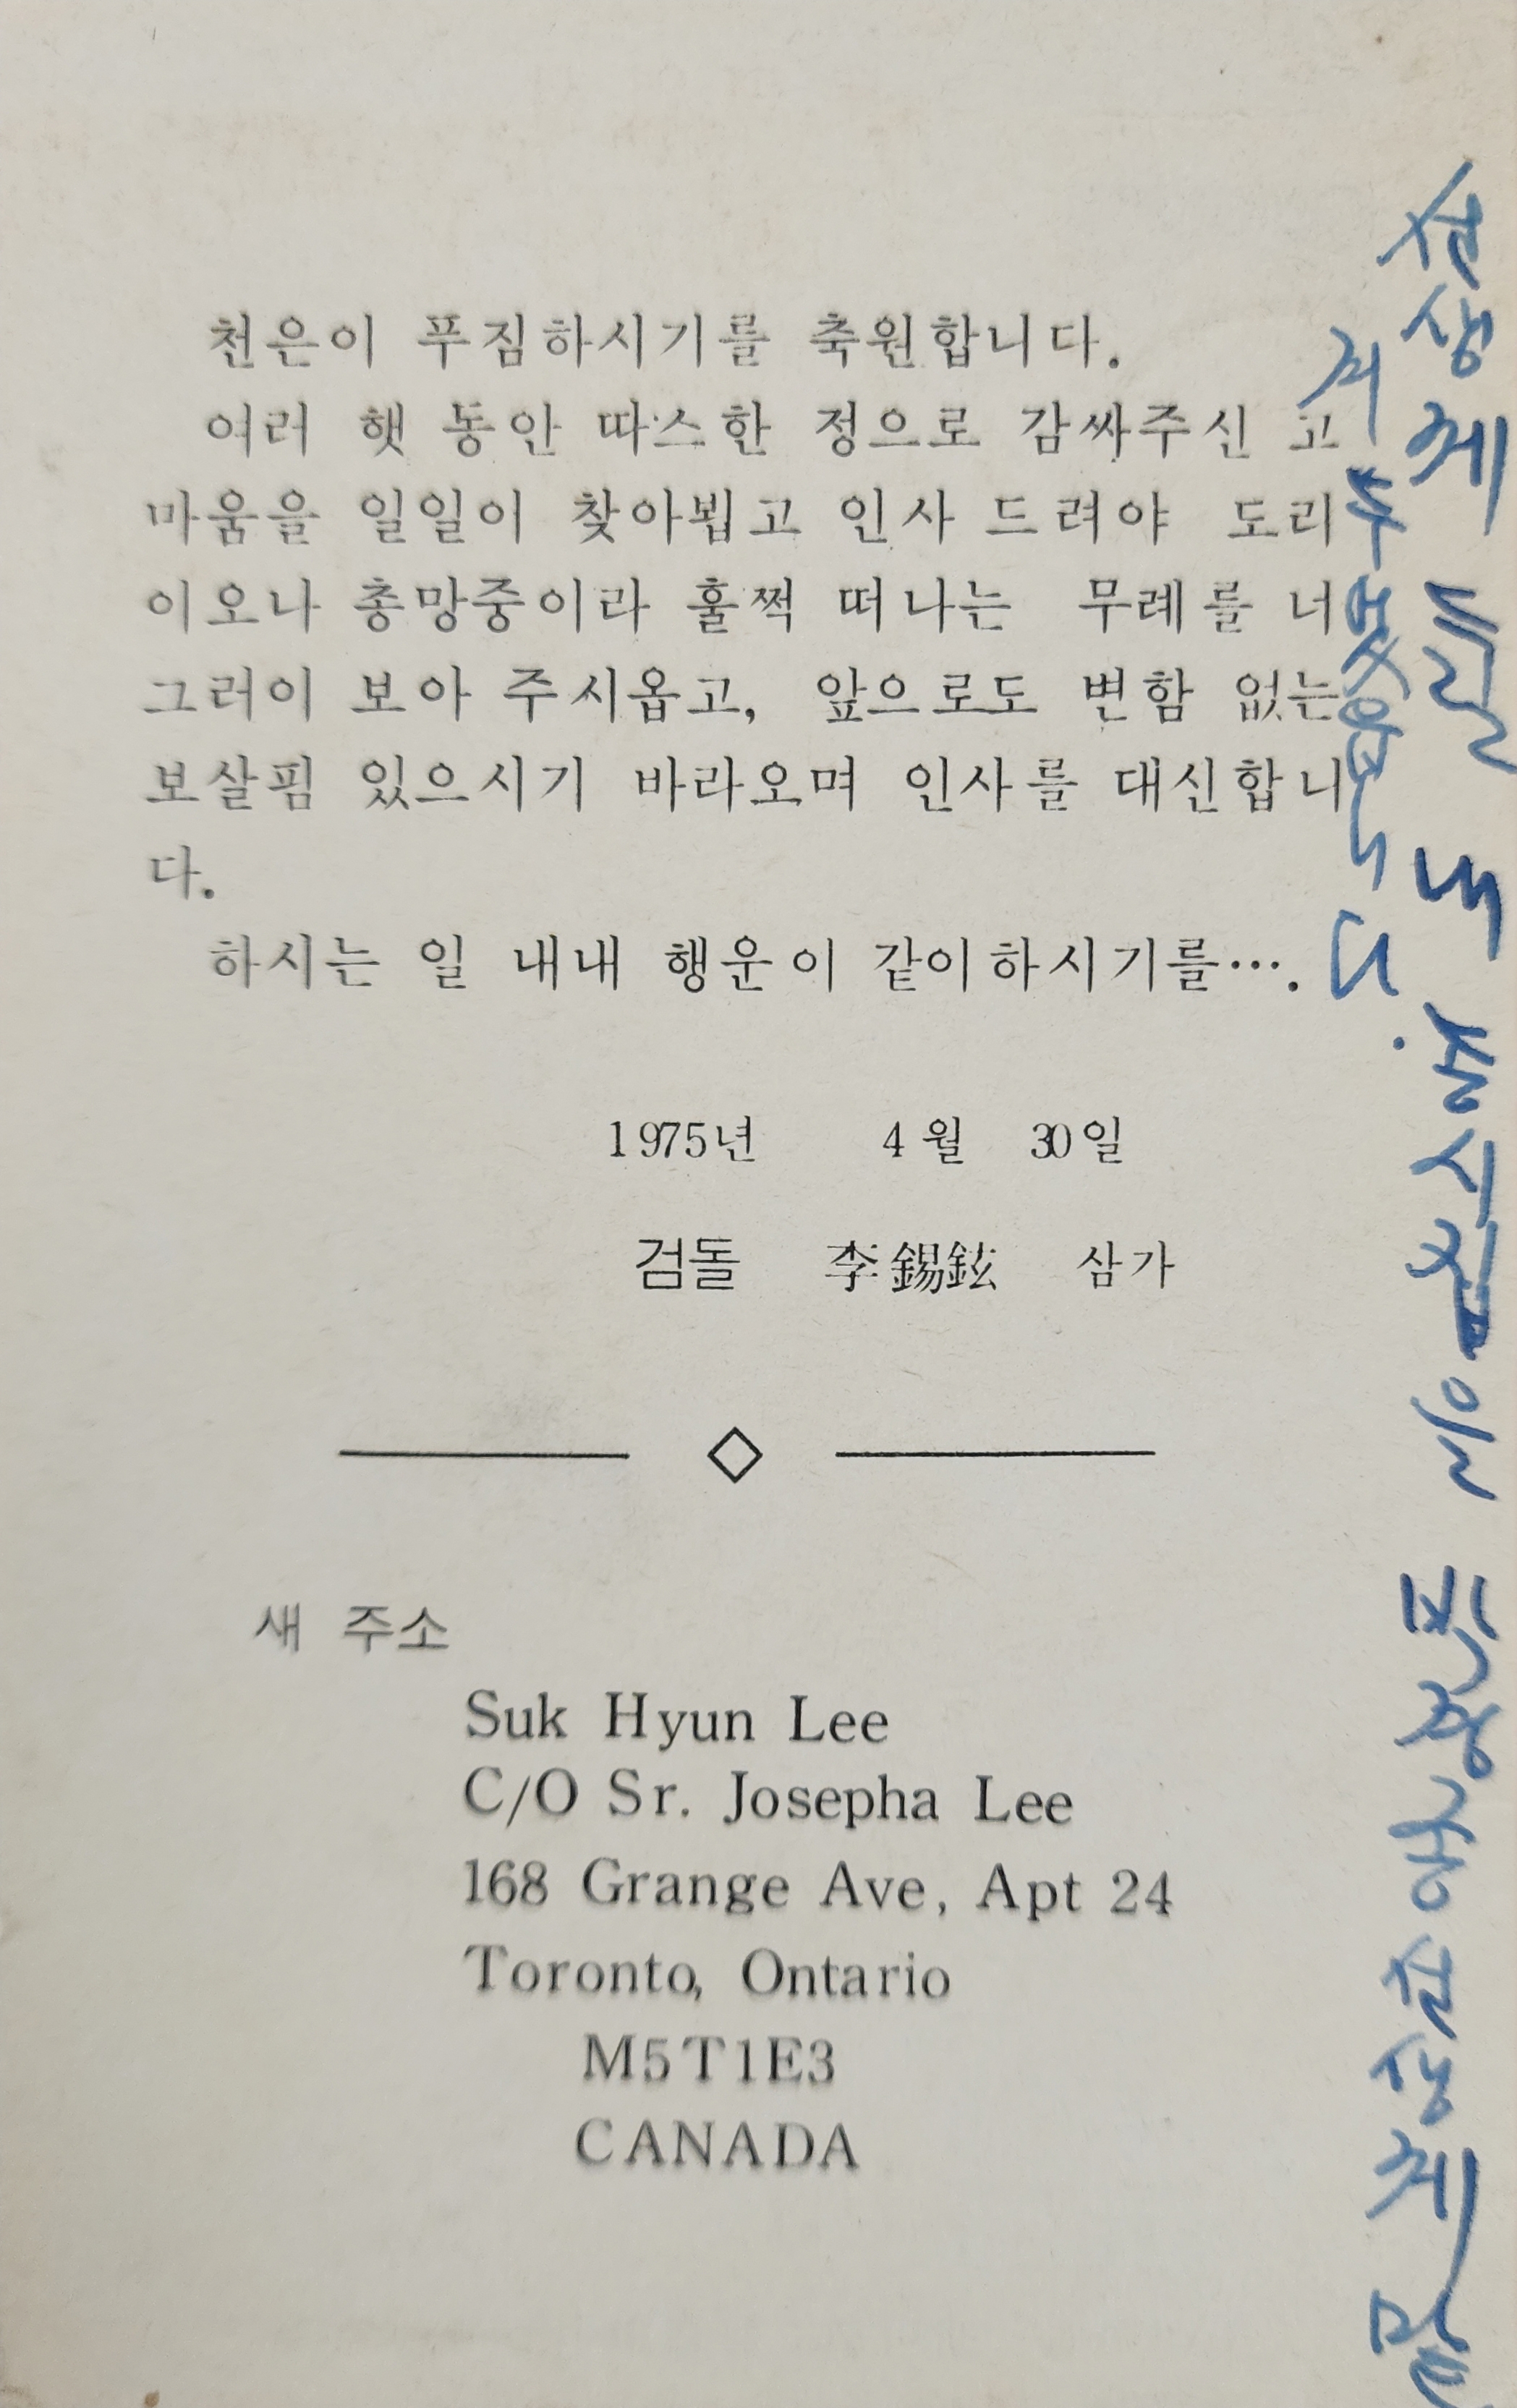 천은이 푸짐하시기를 축원합니다.
여러 햇 동안 따스한 정으로 감싸주신 고
마움을 일일이 찾아뵙고 인사 드려야 도리
이오나 총망중이라 훌쩍 떠나는 무례를 너
그러이 보아 주시옵고, 앞으로도 변함 없는
보살핌 있으시기 바라오며 인사를 대신합니
다.
하시는 일 내내 행운이 같이하시기를….
1975년 4월 30일
검돌 李錫鉉 삼가
새 주소
Suk Hyun Lee
C/O Sr. Josepha Lee
168 Grange Ave, Apt 24
Toronto, Ontario
M5T1E3
CANADA
선생께 드릴 내 동시집은 박경종 선생께 맡
겨 두었읍니다.